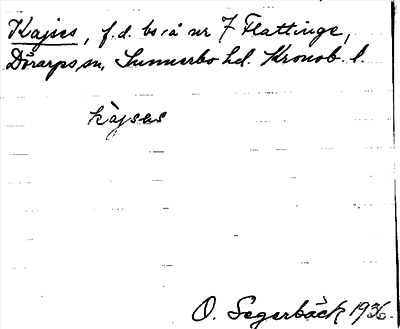 Kajses, f.d. bs å nr 7 Flattinge,
Dörarps sn, Sunnerbo hd. Kronob. l.
kàjses
O. Segerbäck 1936.